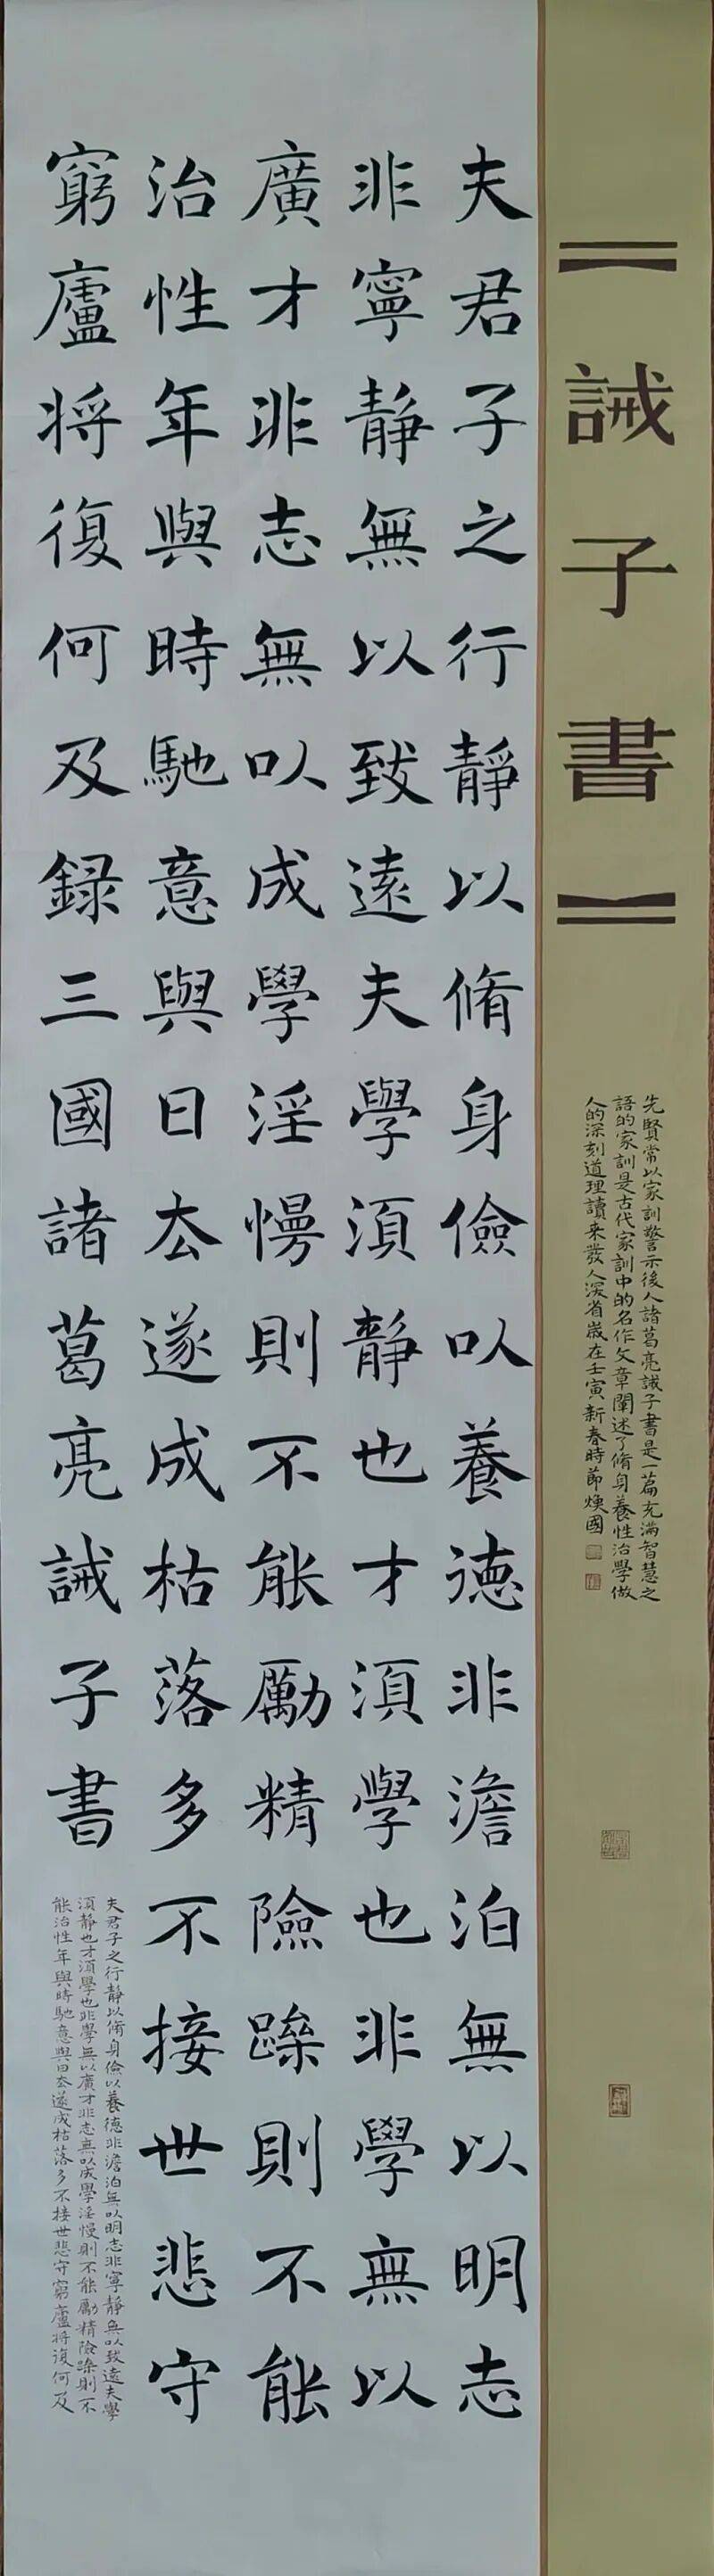 誡子書
先賢常以家訓警示後人諸葛亮誡子書是一篇充滿智慧之
語的家訓是古代家訓中的名作文章闡述了脩身養性治學做
人的深刻道理讀来發人深省嵗在壬寅新春時節煥國
夫君子之行靜以脩身儉以養德非澹泊無以明志
非寧靜無以致遠夫學須靜也才須學也非學無以
廣才非志無以成學淫慢則不能勵精險躁則不能
治性年與時馳意與日去遂成枯落多不接世悲守
窮廬将復何及録三國諸葛亮誡子書
夫君子之行靜以脩身儉以養德非澹泊無以明志非寧靜無以致遠夫學
須靜也才須學也非學無以廣才非志無以成學淫慢則不能勵精險躁則不
能治性年與時馳意與日去遂成枯落多不接世悲守窮廬将復何及